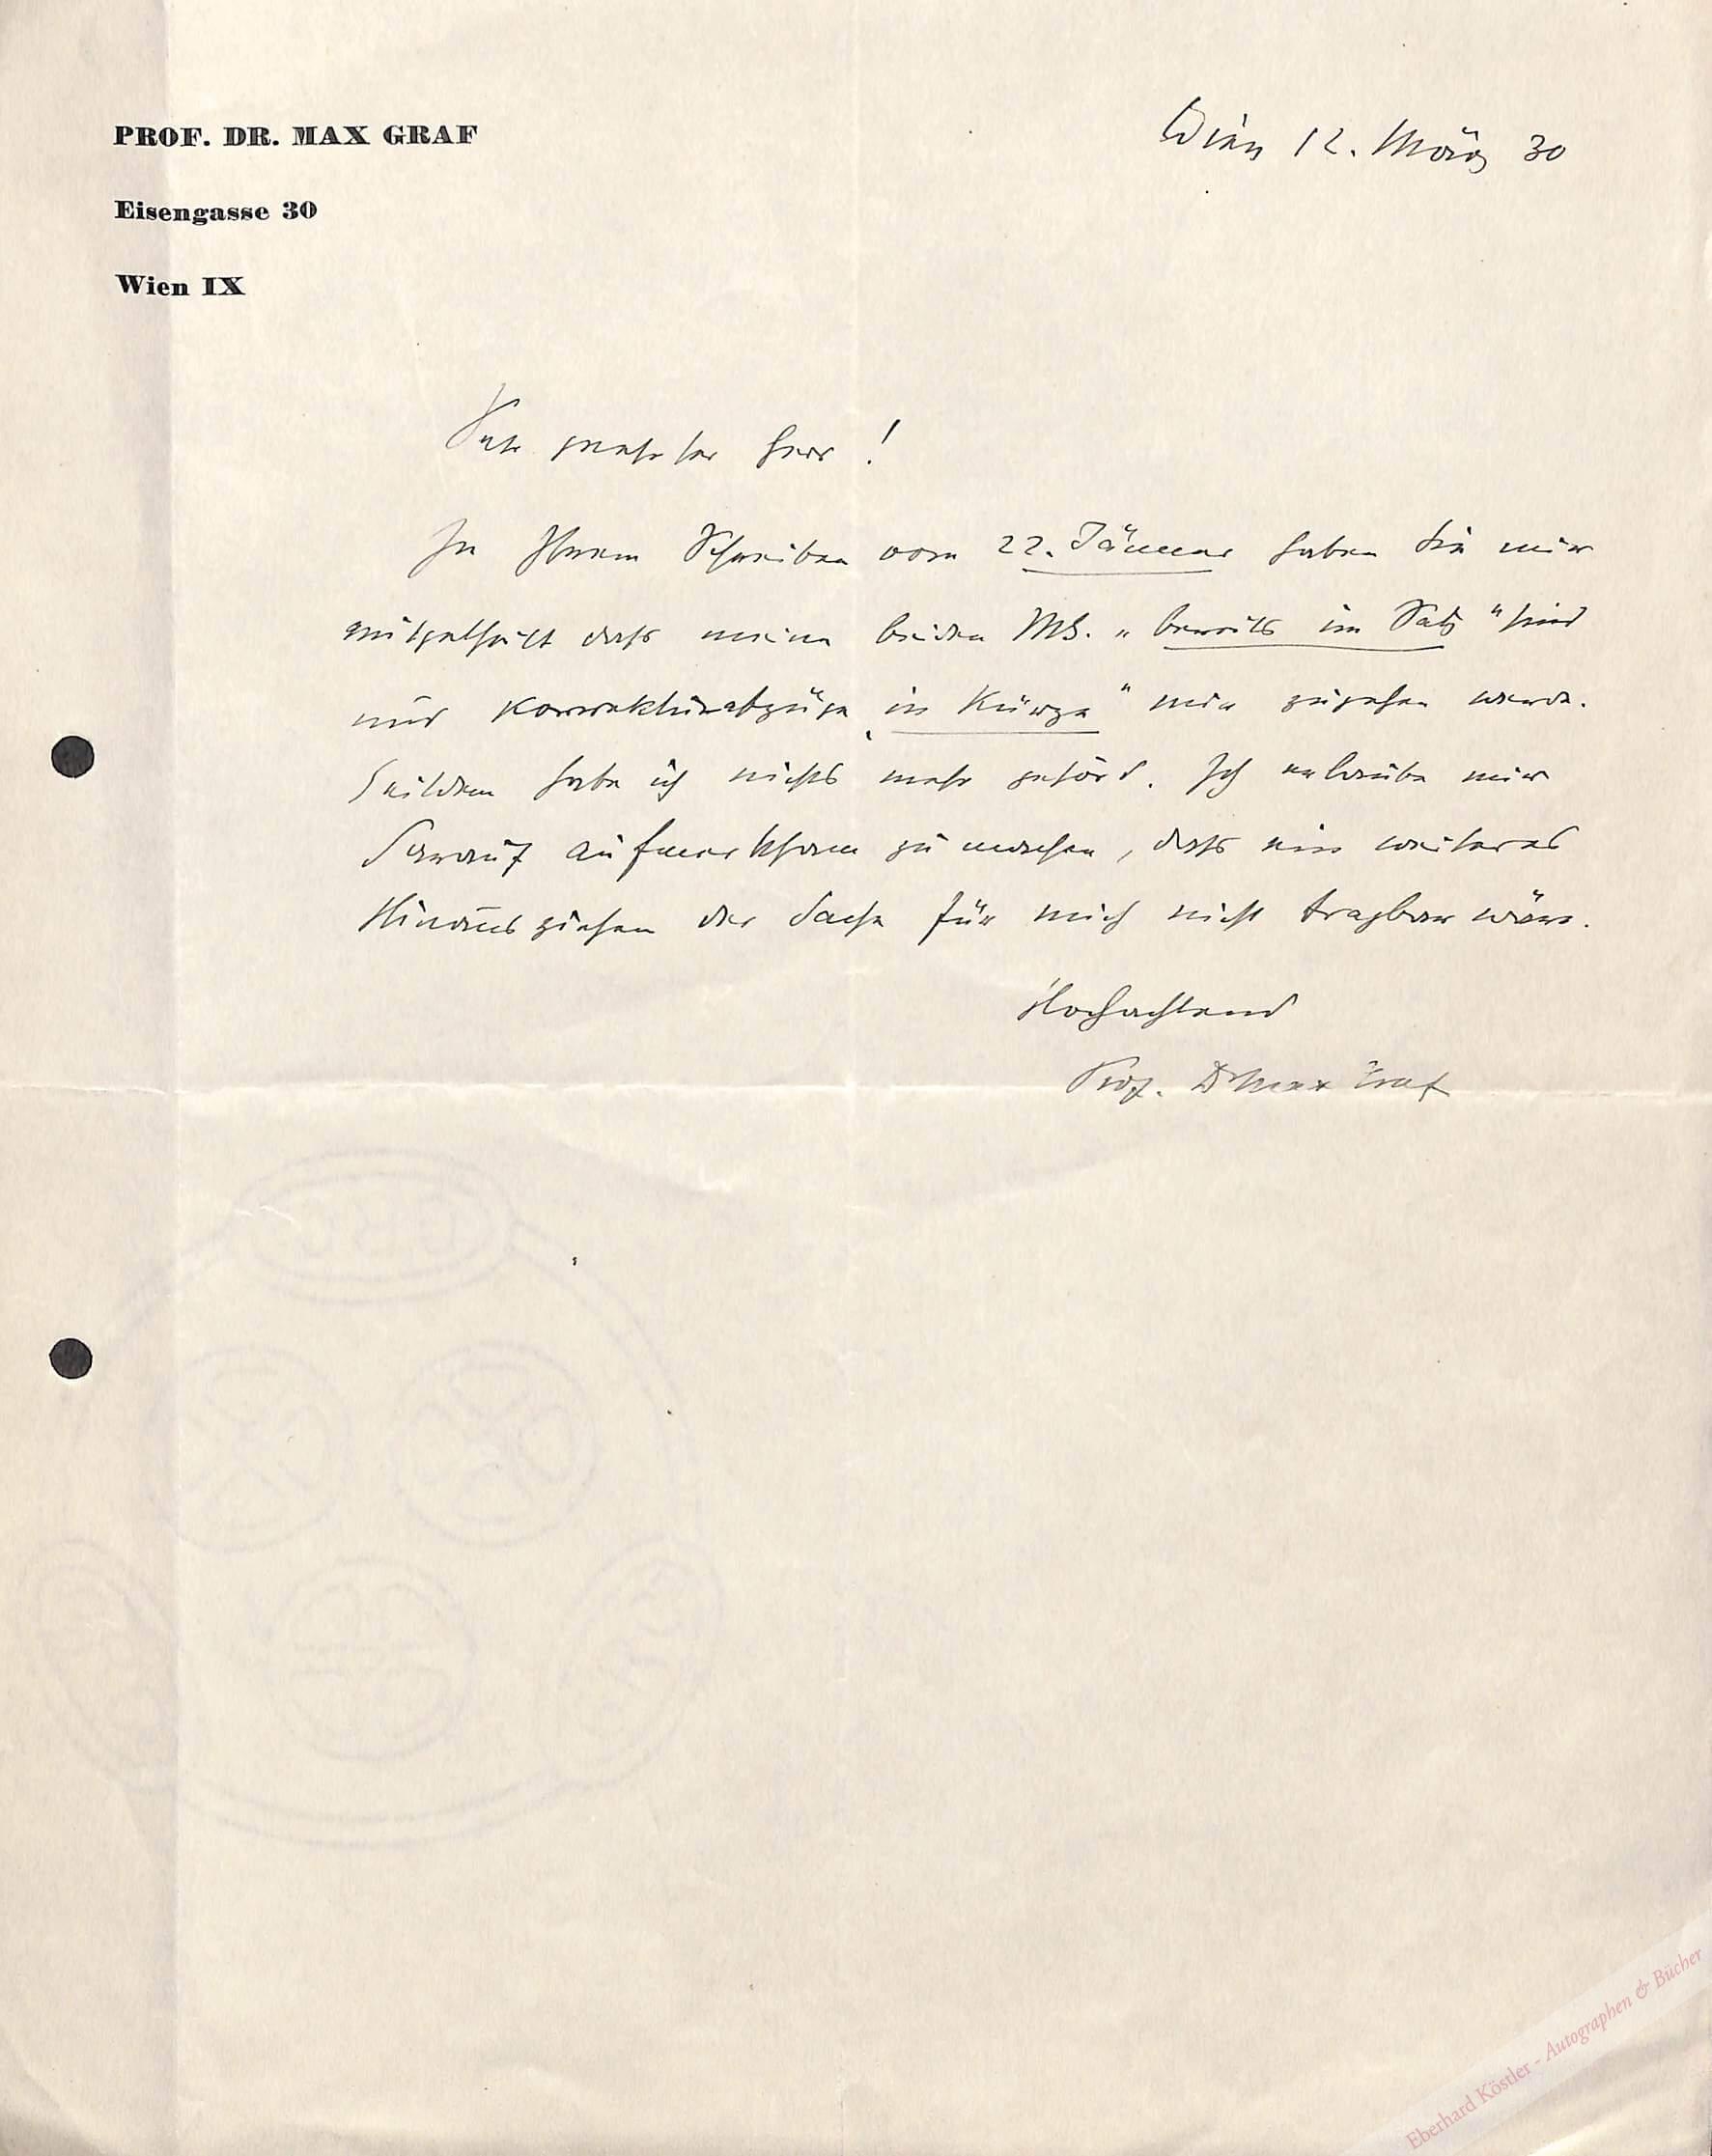 PROF. DR. MAX GRAF
Eisengasse 30
Wien IX
Wien 12. März 30
Sehr geehrter Herr!
In Ihrem Schreiben vom 22. Jänner haben Sie mir
mitgetheilt dass meine beiden MS. „bereits im Satz" sind
und Korrekturabzüge „in Kürze" mir zugehen werde.
Seitdem habe ich nichts mehr gehört. Ich erlaube mir
darauf aufmerksam zu machen, dass ein weiteres
Hinausziehen der Sache für mich nicht tragbar wäre.
Hochachtend
Prof. Dr Max Graf
Eberhard Köstler - Autographen & Bücher